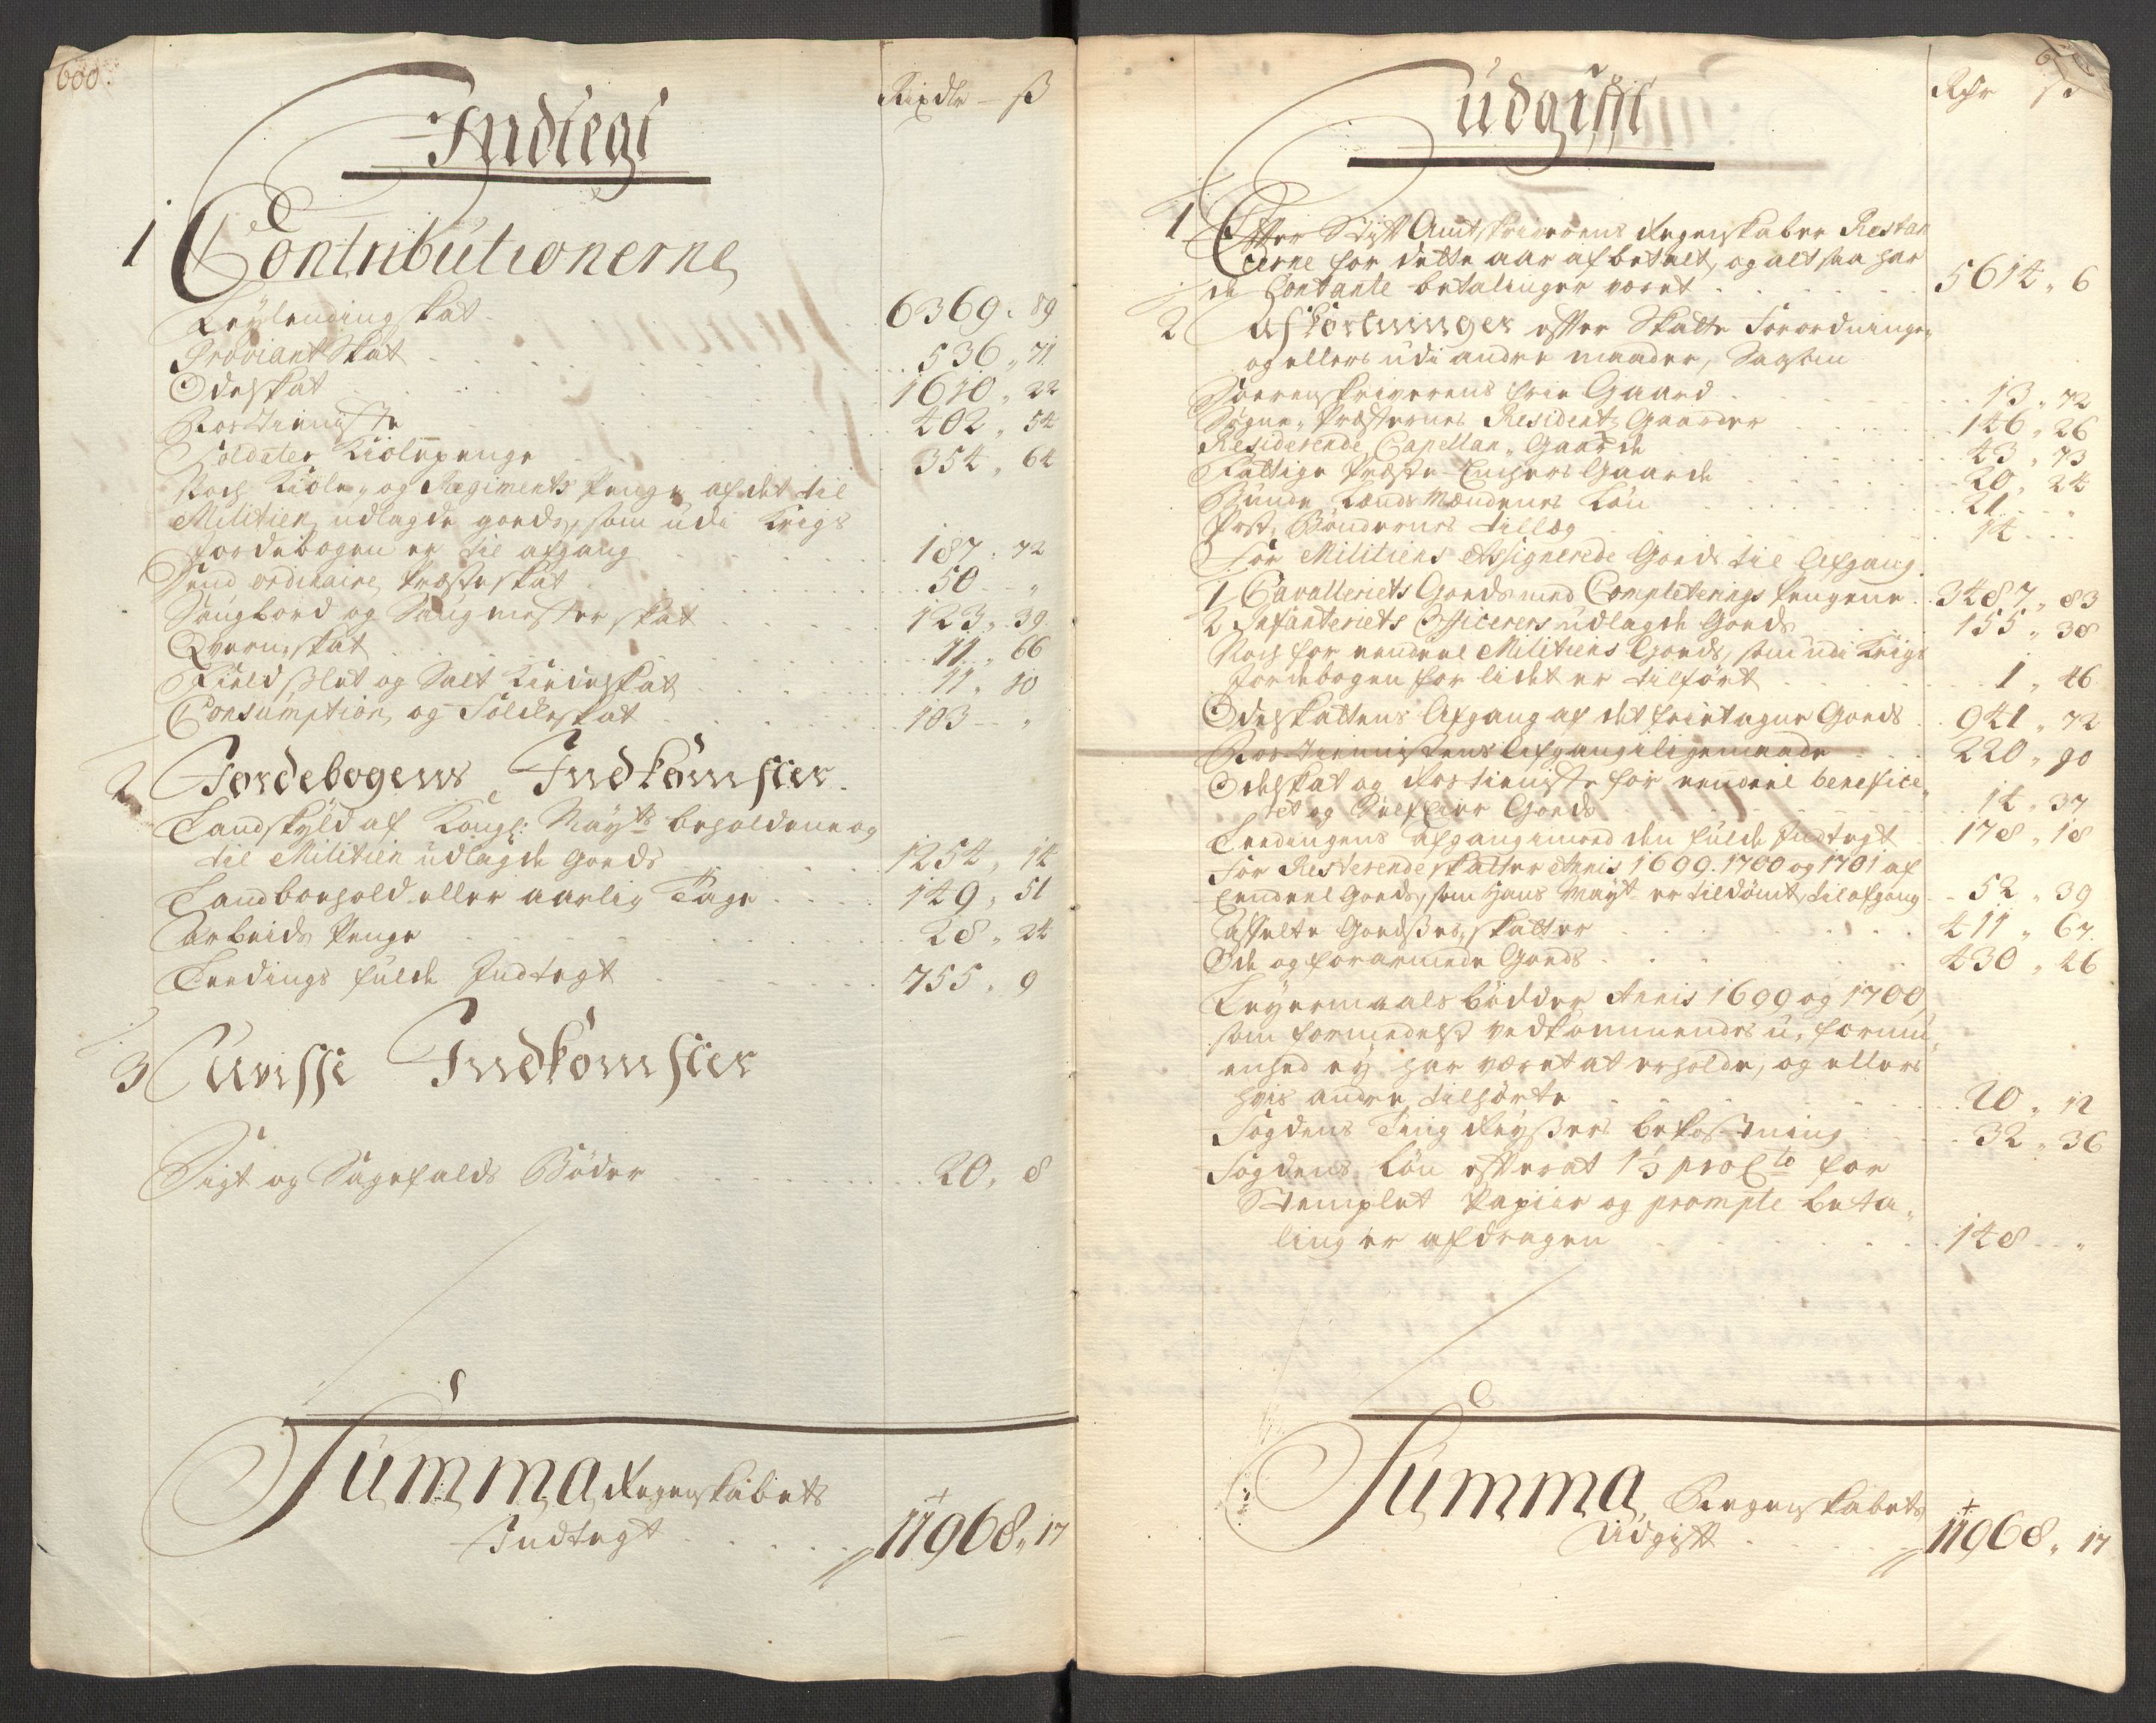 600.
Rixdlr – ß
Indtegt
1 Contributionerne
Leylending skat 6369. 89
Proviant Skat 536 „ 71
Odelskat 1610 „ 22
Rostienniste 402 „ 54
Soldater Kiolepenge 354 „ 64
Noch Kiole- og Regiments Penge af det til
Militien udlagde goeds, som udi Krigs
Jordebogen er til afgang 187 „ 72
Hund ordinaire Præsteskat 50 – „
Saugbord og Saugmester skat 123 „ 39
Qvernskat 71 „ 66
Field Slet og Salt Kiedeskat 11 „ 10
Consumption og Folcheskat 103 – „
2 Jordebogens Indkomster
Landskyld af Kongl: Mayts beholdene og
til Militien udlagde Goeds 1254 „ 14
Landboehold eller aarlig Tage 149 „ 51
Arbeids Penge 28 „ 24
Leedings fulde Indtegt 755 „ 9
3 Uvisse Indkomster
Sigt og Sagefalds Bøder 20 „ 8
Summa Regenskabets
Indtegt 11968 „ 17
Rdr ß
Udgift
1 Efter Stift Amtskriverens Regenskaber Restan
cierne for dette aar af betalt, og alt saa har
de Contante betalinger været 5614 „ 6
2 Afkortninger efter Skatte Forordningen
og ellers udi andre maader, Saasom
Soerenskriverens frie Gaard 13 „ 72
Sogne-Præsternes Residentz Gaarder 146 „ 26
Residerende Capellan-Gaarde 43 „ 73
Fattige Præste-Enchers Gaarde 20 „ 24
Bunde Lænds Mændenes Løn 21 „
Post-Bøndernes tillæg 14 –
For Militiens Assignerede Goeds til Afgang.
1 Cavalleriets Goeds med Completerings Pengene 3487 „ 83
2 Infanteriets Officerers udlagde Goeds 155 „ 38
Noch for eendeel Militiens Goeds, som udi Krigs
Jordebogen for lidet er tilført 1 „ 46
Odelskattens Afgang af det frietagne Goeds 941 „ 72
Rostiennistens Afgang i ligemaade 220 „ 90
Odelskat og Rostienniste for eendeel benefice„
ret og Self Eier Goeds 14 „ 37
Leedingens afgang imod den fulde Indtegt 178 „ 18
For Resterende skatter Annis 1699. 1700 og 1701 af
Eendeel Goeds, som Hans Mayt er tildømt, til afgang 52 „ 39
Affelte Goedses skatter 411 „ 67
Øde og forarmede Goeds 430 „ 26
Leyermaals bødder Annis 1699 og 1700
som formedelst vedkommendes u-formu
enhed ey har været at erholde, og ellers
hvis andre tilhørte 20 „ 12
Fogdens Ting Reysers bekostning 32 „ 36
Fogdens Løn efter at 1⅓ pro Cto for
Stemplet Papiir og prompte beta„
linger afdragen 148 „
Summa Regenskabets
Udgift 11968 „ 17